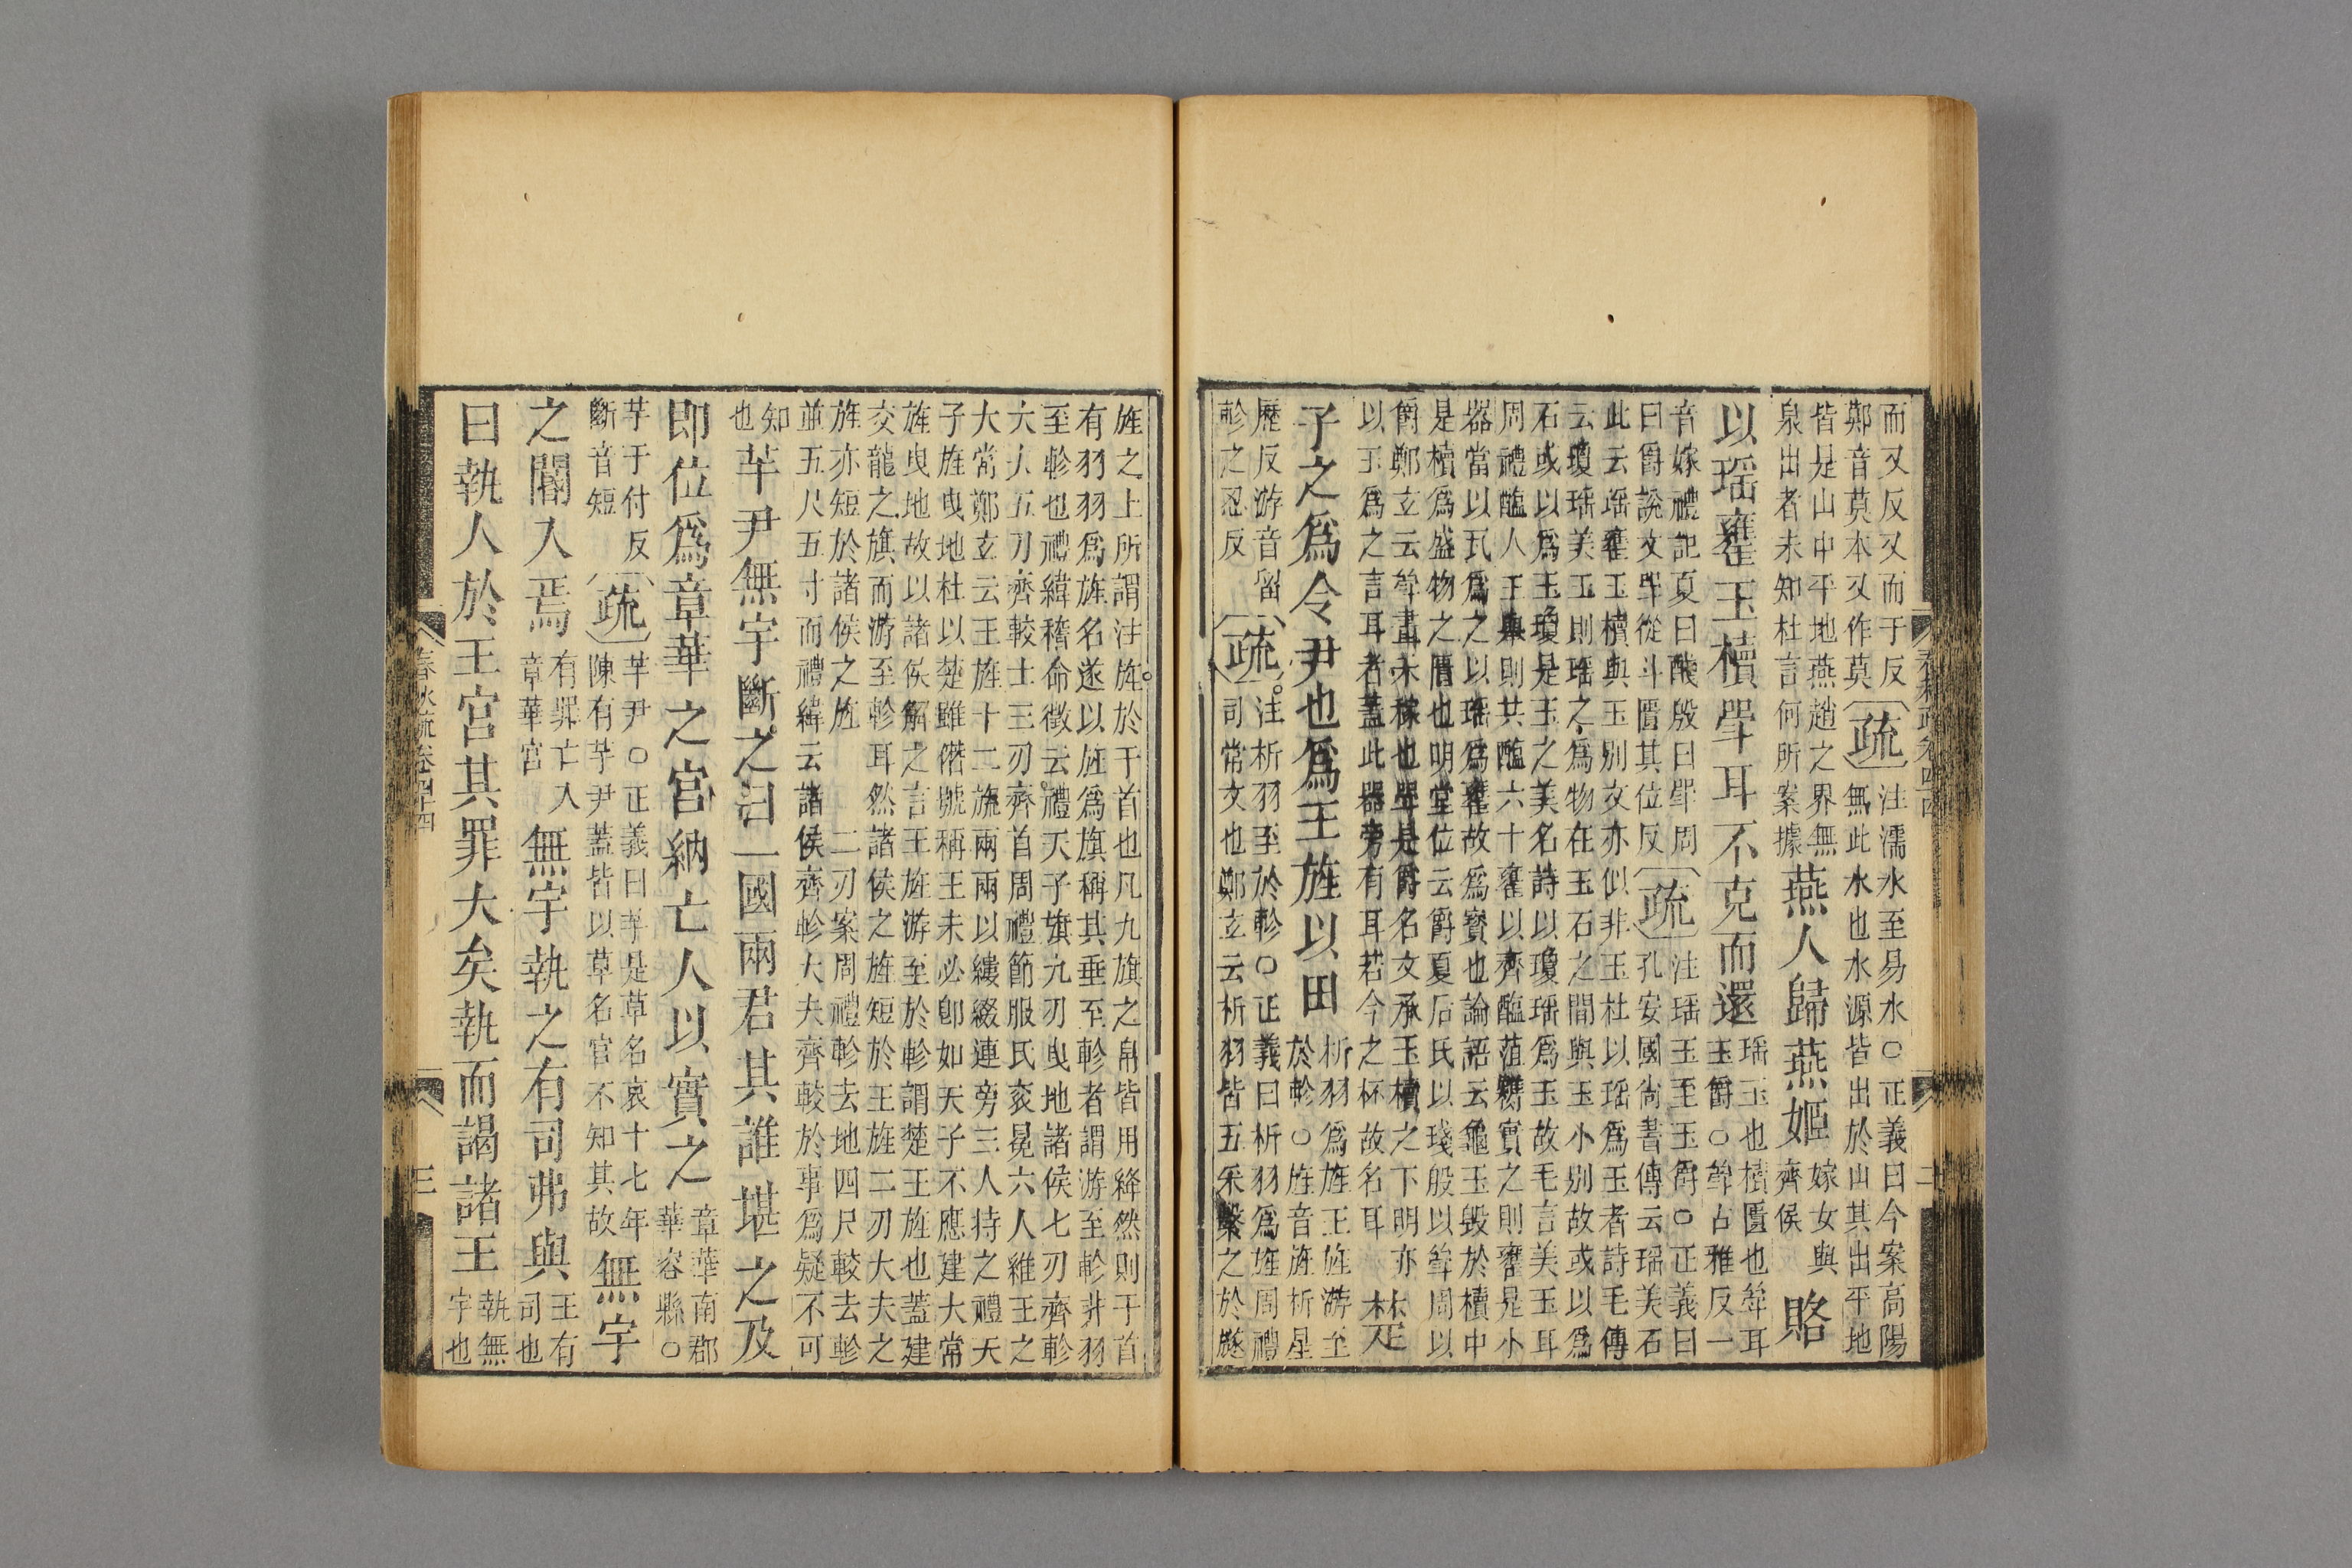 而又反又而于反疏注濡水至易水○正義曰今案高陽
鄚音莫本又作莫疏無此水也水源皆出於山其出平地
皆是山中平地燕趙之界無
泉出者未知杜言何所案據
燕人歸燕姬
嫁女與
齊侯
賂
以瑶罋玉櫝斝耳不克而還
瑶玉也櫝匱也斝耳
玉爵○斝古雅反一
音嫁禮記夏曰醆殷曰斝周
曰爵説文斝從斗匱其位反
疏
注瑶玉至玉爵○正義曰
孔安國尚書傳云瑶美石
此云瑶罋玉櫝與玉别文亦似非玉杜以瑶爲玉者詩毛傳
云瓊瑶美玉則瑶之爲物在玉石之間與玉小别故或以爲
石或以爲玉瓊是玉之美名詩以瓊瑶爲玉故毛言美玉耳
周禮醢人王舉則共醢六十罋以齊醢菹醬實之則罋是小
器當以瓦爲之以瑶爲罋故爲寳也論語云龜玉毁於櫝中
是櫝爲盛物之匱也明堂位云爵夏后氏以琖殷以斝周以
爵鄭玄云斝畫禾稼也斝是爵名文承玉櫝之下明亦
以玉爲之言耳者蓋此器旁有耳若今之杯故名耳
楚
子之爲令尹也爲王旌以田
析羽爲旌王旌游至
於軫○旌音旌析星
歷反游音留
軫之忍反
疏
注析羽至於軫○正義曰析羽爲旌周禮
司常文也鄭玄云析羽皆五采繫之於旞
旌之上所謂注旄於干首也凡九旗之帛皆用絳然則干首
有羽羽爲旌名遂以旌爲旗稱其垂至軫者謂游至軫非羽
至軫也禮緯稽命徵云禮天子旗九刃曳地諸侯七刃齊軫
大夫五刃齊較士三刃齊首周禮節服氏衮冕六人維王之
大常鄭玄云王旌十二旒兩兩以縷綴連旁三人持之禮天
子旌曳地杜以楚雖僭號稱王未必即如天子不應建大常
旌曳地故以諸侯解之言王旌游至於軫謂楚王旌也蓋建
交龍之旗而游至軫耳然諸侯之旌短於王旌二刃大夫之
旌亦短於諸侯之旌二刃案周禮軫去地四尺較去軫
並五尺五寸而禮緯云諸侯齊軫大夫齊較於事爲疑不可
知
也
芋尹無宇斷之曰一國兩君其誰堪之及
即位爲章華之宮納亡人以實之
章華南郡
華容縣○
芋于付反
斷音短
疏
芋尹○正義曰芋是草名哀十七年
陳有芋尹蓋皆以草名官不知其故
無宇
之閽入焉
有罪亡入
章華宮
無宇執之有司弗與
王有
司也
曰執人於王宮其罪大矣執而謁諸王
執無
宇也
春秋疏卷四十四
二
春秋疏卷四十四
三